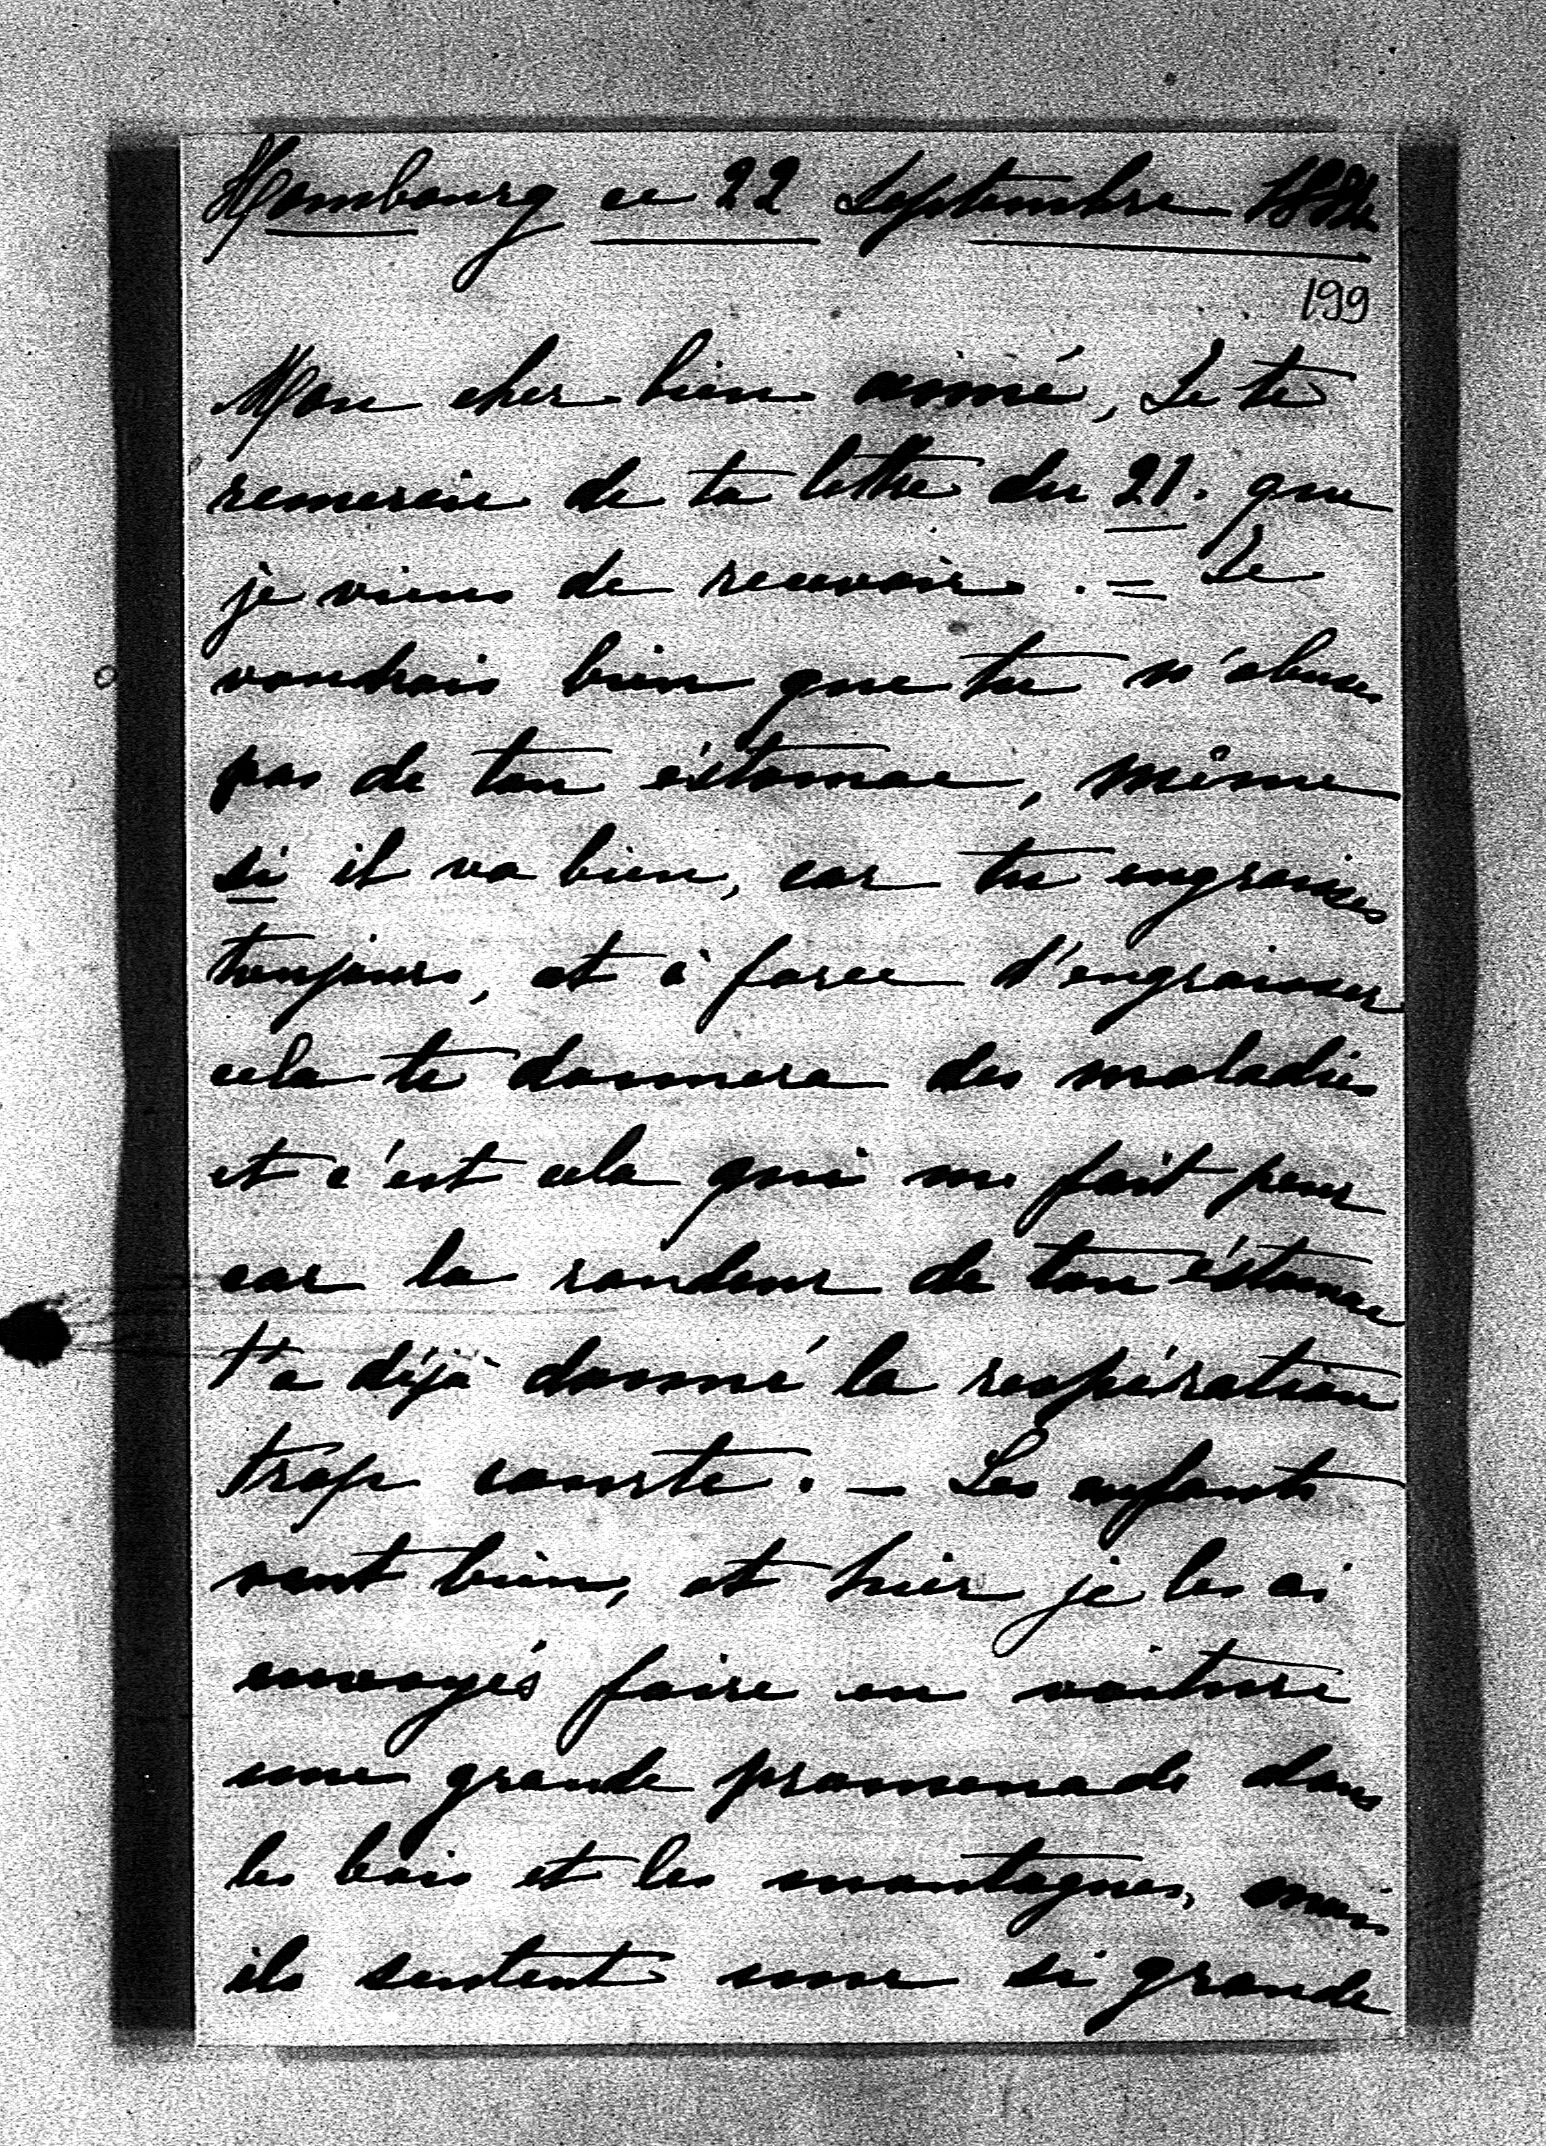 Hombourg ce 22 Septembre
199
Mon cher bien aimé, Je te
remercie de ta lettre du 21. que
je viens de recevoir. = Je
voudrais bien que tu n'abuses
pas de ton éstomac, même
si il va bien, car tu engraisses
toujours, et à force d'engraisser
cela te donnera des maladies
et c'est cela qui me fait peur
car la rondeur de ton éstomac
t'a déjà donné la respération
trop courte. — Les enfants
vont bien, et hier je les ai
envoyés faire en voiture
une grande promenade dans
les bois et les montagnes, mais
ils sentent une si grande